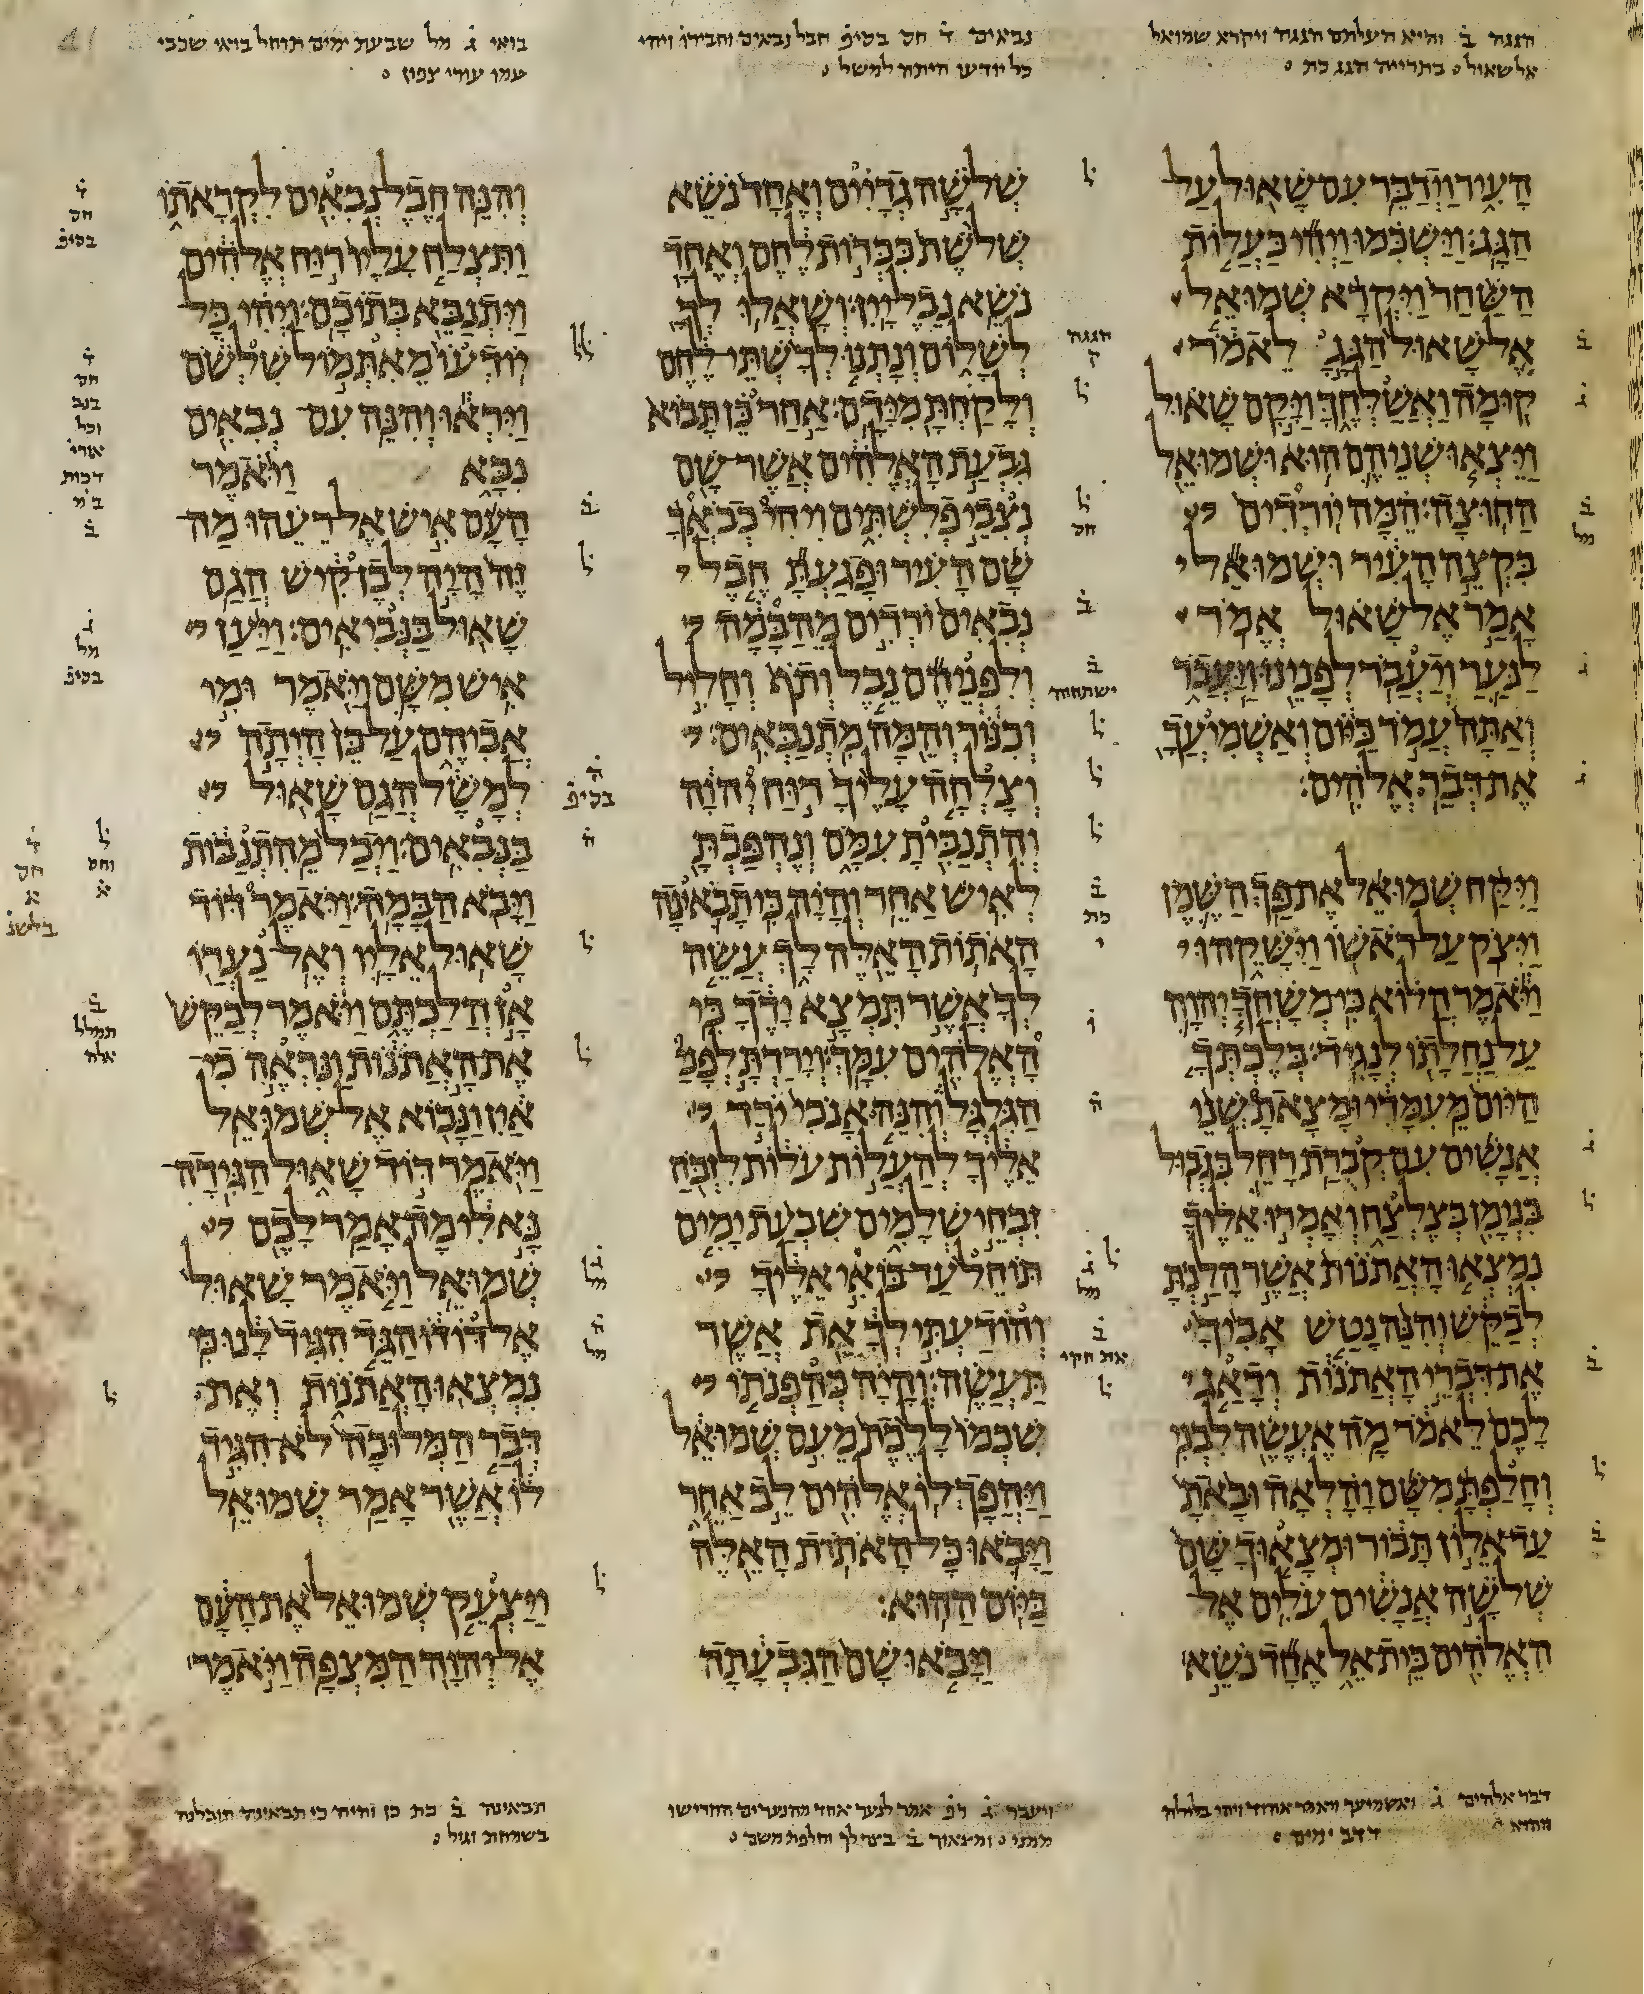 הגגה ב והיא העלתם הגגה ויקרא שמואל
אל שאול בתרייה הגג כת
העיר וידבר עם שאול על
הגג וישכמו ויהי כעלות
השחר ויקרא שמואל
אל שאול הגג לאמר
קומה ואשלחך ויקם שאול
ויצאו שניהם הוא ושמואל
החוצה המה יורדים
בקצה העיר ושמואל
אמר אל שאול אמר
לנער ויעבר לפנינו ויעבר
ואתה עמד כיום ואשמיעך
את דבר אלהים
ויקח שמואל את פך השמן
ויצק על ראשו וישקהו
ויאמר הלוא כי משחך יהוה
על נחלתו לנגיד בלכתך
היום מעמדי ומצאת שני
אנשים עם קברת רחל בגבול
בנימן בצלצח ואמרו אליך
נמצאו האתנות אשר הלכת
לבקש והנה נטש אביך
את דברי האתנות ודאג
לכם לאמר מה אעשה לבני
וחלפת משם והלאה ובאת
עד אלון תבור ומצאוך שם
שלשה אנשים עלים אל
האלהים בית אל אחד נשא
נביאים ד חס בסיפ חבל נביאים וחבירו ויהי
כל יודעו היתה למשל
שלשה גדיים ואחד נשא
שלשת ככרות לחם ואחד
נשא נבל יין ושאלו לך
לשלום ונתנו לך שתי לחם
ולקחת מידם אחר כן תבוא
גבעת האלהים אשר שם
נצבי פלשתים ויהי כבאך
שם העיר ופגעת חבל
נבאים ירדים מהבמה
ולפניהם נבל ותף וחליל
וכנור והמה מתנבאים
וצלחה עליך רוח יהוה
והתנבית עמם ונהפכת
לאיש אחר והיה כי תבאינה
האתות האלה לך עשה
לך אשר תמצא ידך כי
האלהים עמך וירדת לפני
הגלגל והנה אנכי ירד
אליך להעלות עלות לזבח
זבחי שלמים שבעת ימים
תוחל עד בואי אליך
והודעתי לך את אשר
תעשה והיה כהפנתו
שכמו ללכת מעם שמואל
ויהפך לו אלהים לב אחר
ויבאו כל האתות האלה
ביום ההוא
ויבאו שם הגבעתה
בואי ג מל שבעת ימים תוחל בואי שכבי
עמו עורי צפון
והנה חבל נבאים לקראתו
ותצלח עליו רוח אלהים
ויתנבא בתוכם ויהי כל
יודעו מאתמול שלשם
ויראו והנה עם נבאים
נבא ויאמר
העם איש אל רעהו מה
זה היה לבן קיש הגם
שאול בנביאים ויען
איש משם ויאמר ומי
אביהם על כן היתה
למשל הגם שאול
בנבאים ויכל מהתנבות
ויבא הבמה ויאמר דוד
שאול אליו ואל נערו
אן הלכתם ויאמר לבקש
את האתנות ונראה כי
אין ונבוא אל שמואל
ויאמר דוד שאול הגידה
נא לי מה אמר לכם
שמואל ויאמר שאול
אל דודו הגד הגיד לנו כי
נמצאו האתנות ואת
דבר המלוכה לא הגיד
לו אשר אמר שמואל
ויצעק שמואל את העם
אל יהוה המצפה ויאמר
דבר אלהים ג ואשמיעך ויאמר אהוד ויהי בלילה
ההוא דדב ימים
ויעבר ג רפ אמר לנער אחד מהנערים החרישו
ממני ומצאוך ב בצר לך וחלפת משם
תבאינה ב כת כן והיה כי תבאינה תובלנה
בשמחת וגיל